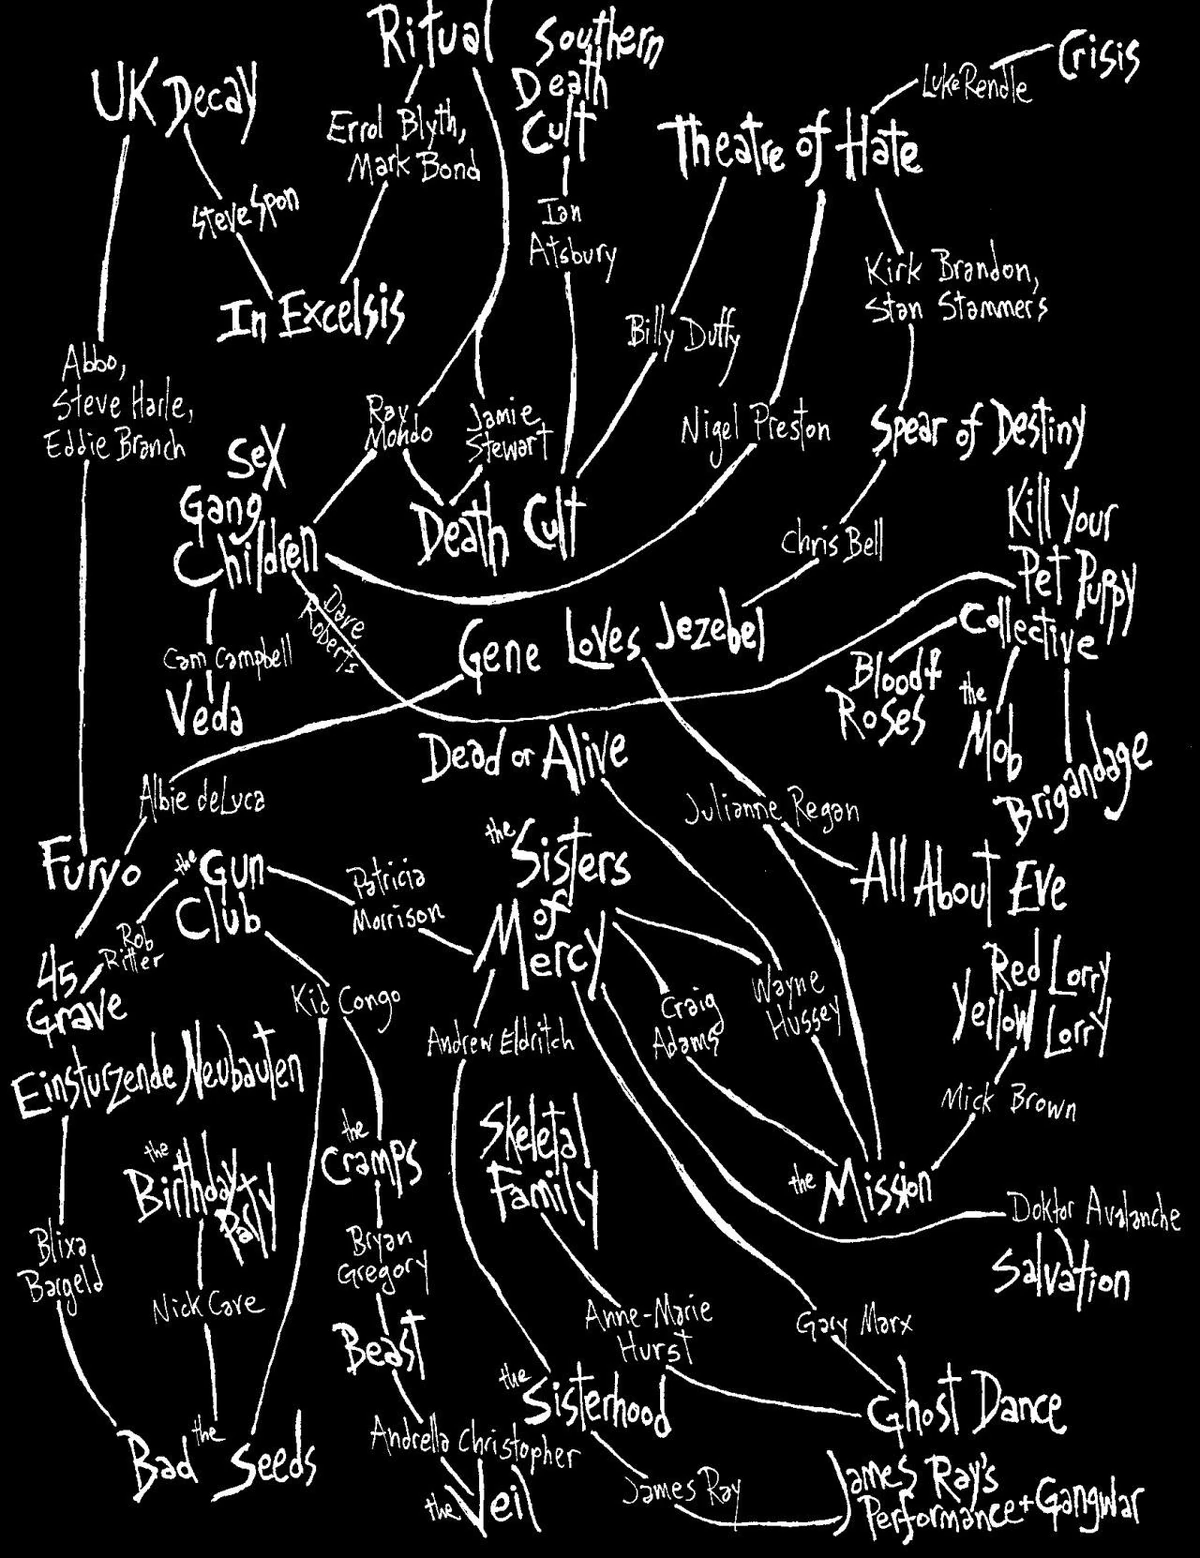 Ritual
Southern
Death
Cult
Crisis
Luke Rendle
UK Decay
Errol Blyth,
Mark Bond
Theatre of Hate
Steve Spon
Ian
Atsbury
Kirk Brandon,
Stan Stammers
In Excelsis
Billy Duffy
Abbo,
Steve Harle,
Eddie Branch
Ray
Mondo
Jamie
Stewart
Nigel Preston
Spear of Destiny
Sex
Gang
Children
Death Cult
Chris Bell
Kill Your
Pet Puppy
Collective
Dave
Roberts
Gene Loves Jezebel
Cam Campbell
Veda
Blood +
Roses
the
Mob
Brigandage
Dead or Alive
Albie deLuca
Julianne Regan
Furyo
the Gun
Club
Patricia
Morrison
the
Sisters
of
Mercy
All About Eve
Rob
Ritter
45
Grave
Kid Congo
Craig
Adams
Wayne
Hussey
Red Lorry
Yellow Lorry
Andrew Eldritch
Einsturzende Neubauten
Mick Brown
the
Birthday
Party
the
Cramps
Skeletal
Family
the Mission
Doktor Avalanche
Salvation
Blixa
Bargeld
Nick Cave
Bryan
Gregory
Anne-Marie
Hurst
Gary Marx
Beast
the
Sisterhood
Ghost Dance
Bad the Seeds
Andrella Christopher
the Veil
James Ray
James Ray's
Performance + Gangwar